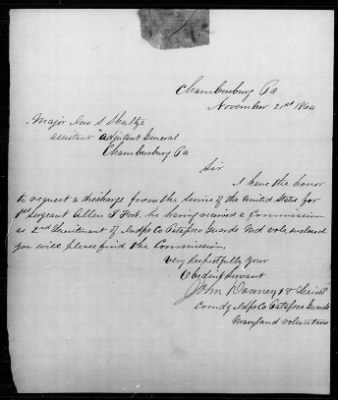 Chambersburg Pa
November 21st 1864
Major Jno S Shultze
assistant Adjutant General
Chambersburg Pa
Sir
I have the honor
to request a discharge from the Service of the United States for
1st Sergeant Allen he having received a Commission
as 2nd Lieutenant of Indpt Co Patapsco Guards Md vols, enclosed
you will please find the Commission,
Very Respectfully Your
Obedient Servant
John Downey 1st Lieut
Comdg Indpt Co Patapsco Guards
Maryland volunteers